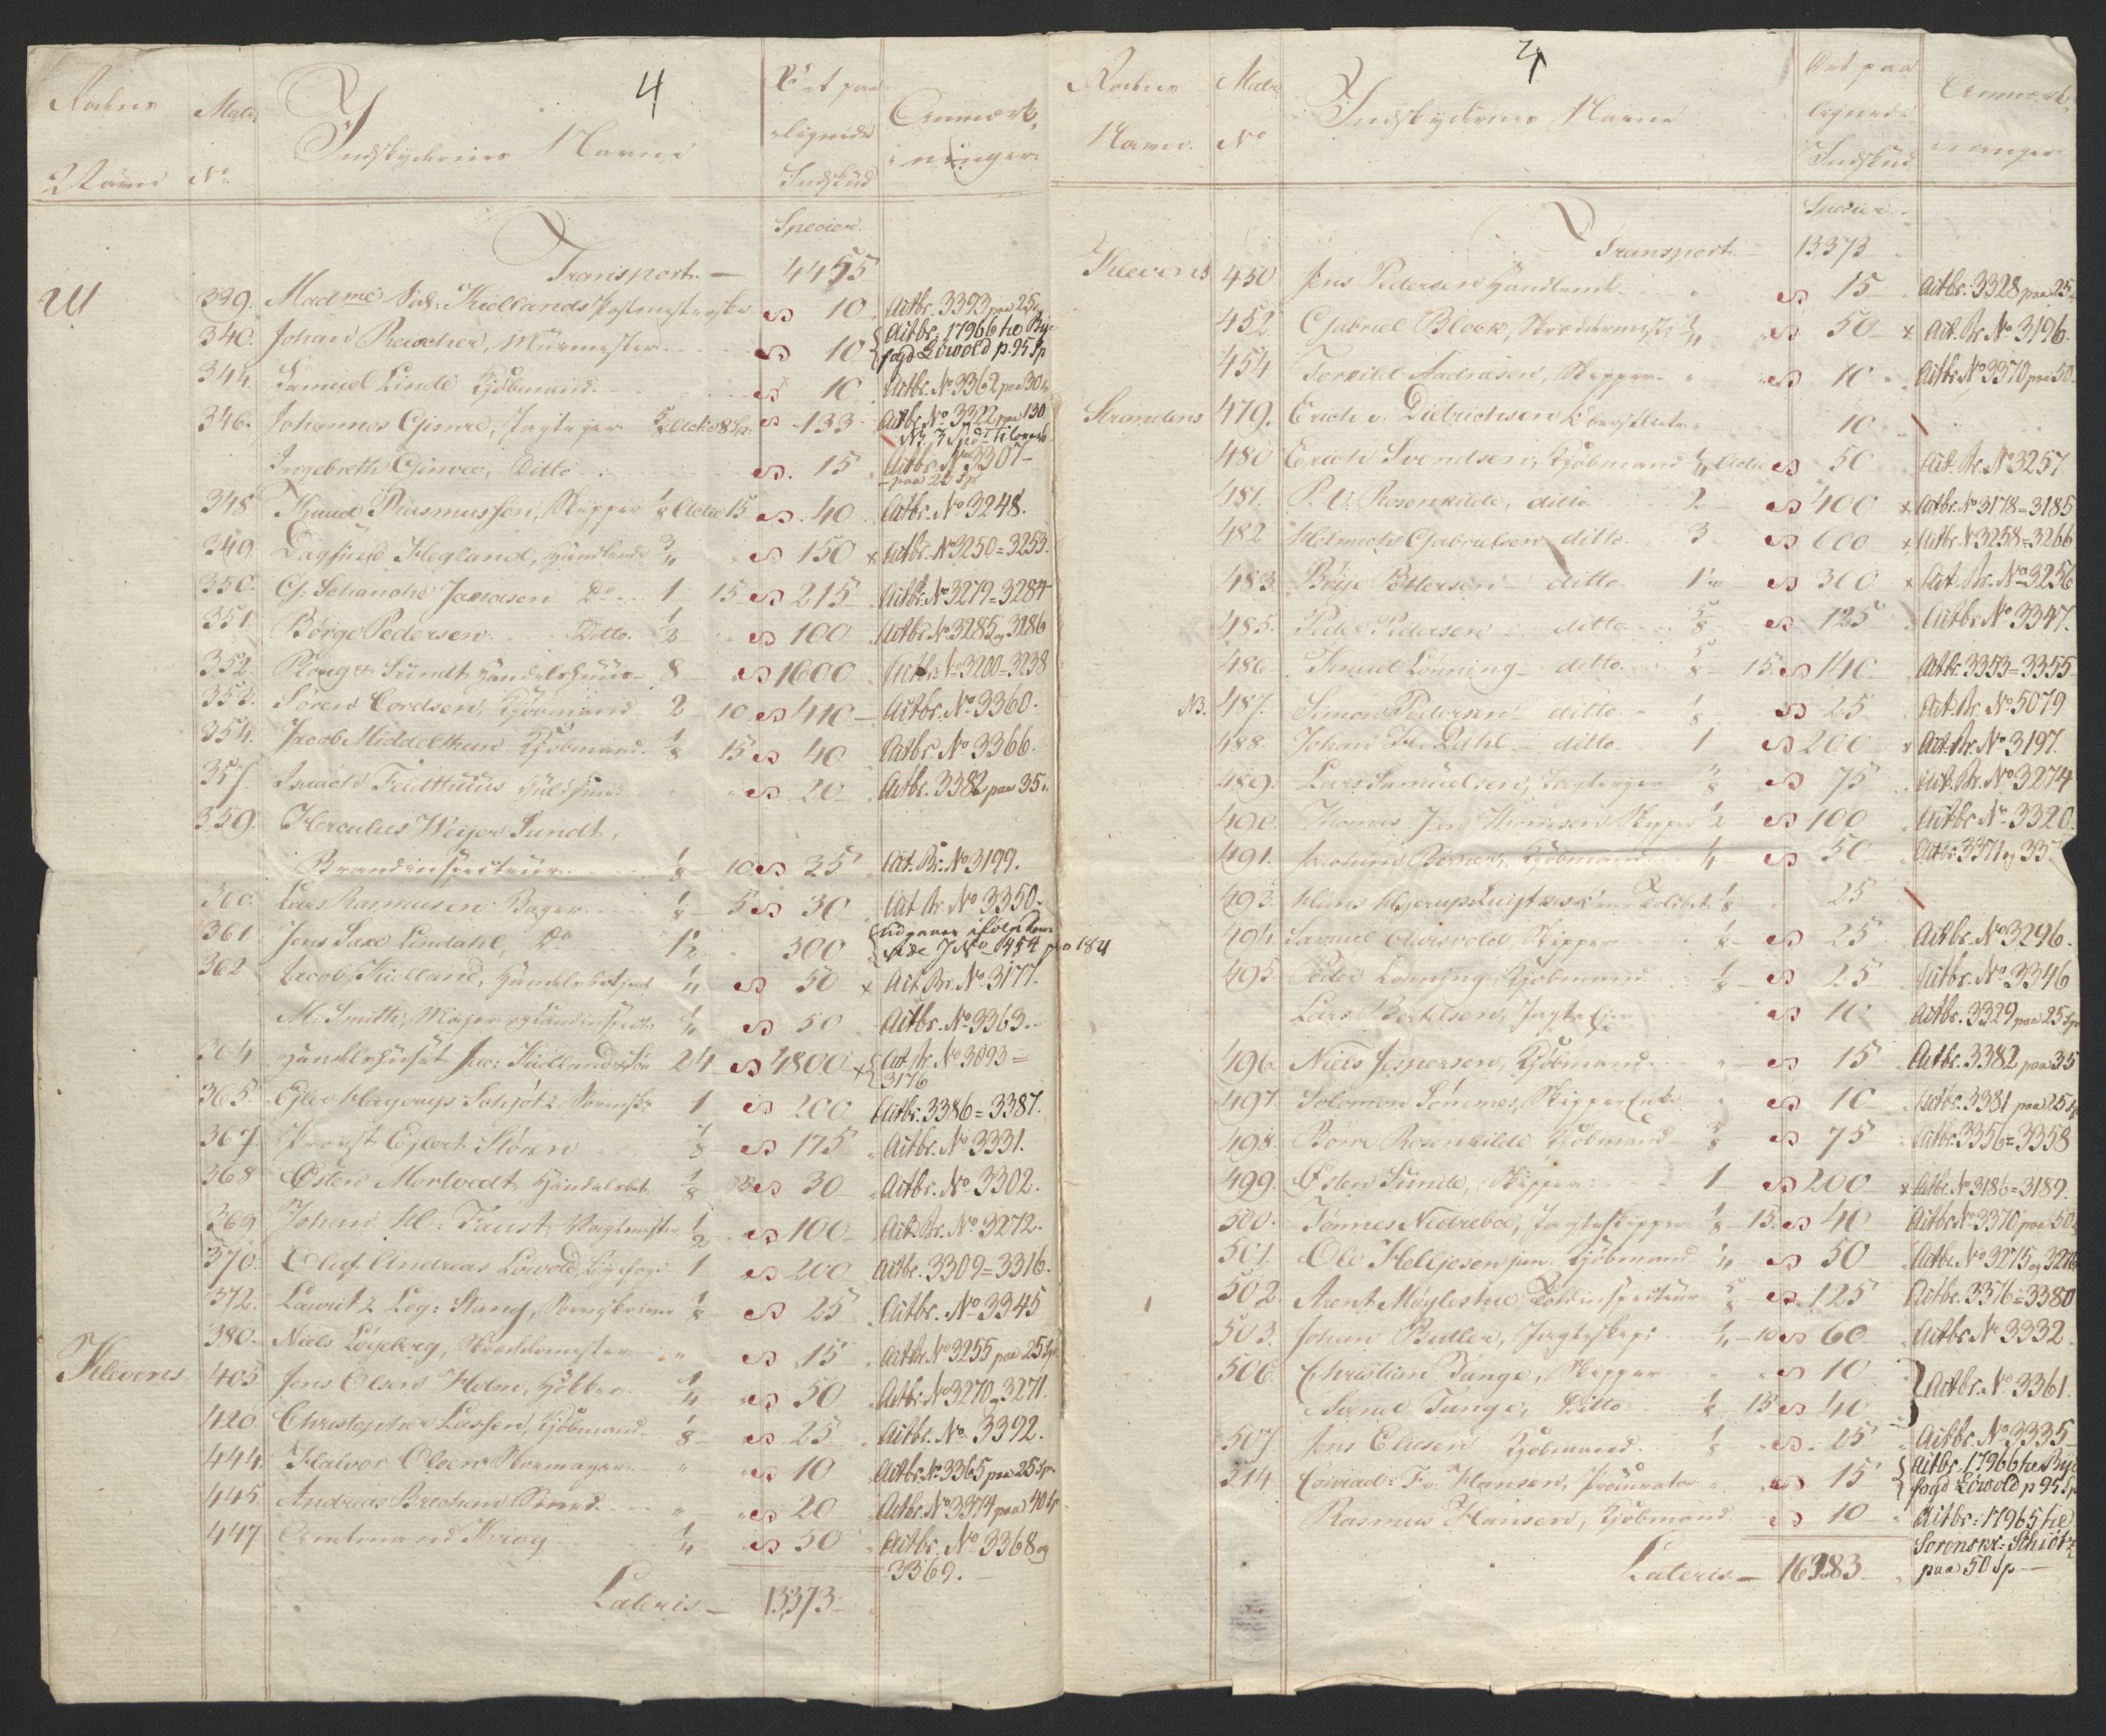 4
Rodens Navn
Matr. No
Indskydernes Navne
Det paa lignede Indskud
Anmærkninger
Specier
Transport — 4455
339. Madme Sal: Kiellands Postmesterske 10 Actbr. 3393 paa 25
340. Johan Reischer, Muurmester 10 Actbr. 17966 til Bye
fogd Löwold p. 95 Sp
344. Samuel Linde Kjøbmand 10 Actbr. No 3362 paa 30
346. Johannes Gimre, Jagteier 5/8 Actie 8 Sp: 133 Actbr. No 3322 paa 130
Ingebreth Gimre, Ditto 15 Actbr. No 3307 —
— paa 20 Sp
348 Knud Rasmussen, Skipper 1/8 Actie 15 40 Actbr. No 3248.
349 Dagfind Hegland, Handlende 3/4 150 x Actbr. No 3250 = 3253.
350. C: Schanche Jansen Do 1 15 215 Actbr. No 3279 = 3284
351 Børge Pedersen Ditto. 1/2 100 Actbr. No 3285 og 3286
352. Ploug & Sundt Handelshuus 8 1600 Actbr. No 3200 = 3238
353. Søren Cordsen, Kjøbmand 2 10 410 Actbr. No 3360.
354. Jacob Middelthun Kjøbmand. 1/8 15 40 Actbr. No 3366.
357. Isaach Feidthuus Guldsmed 20 Actbr. 3382 paa 35
359. Herculus Weyer Sundt,
Brandinspecteur 1/8 10 35 Act. Br. No 3199.
360. Lars Rasmusen Bager 1/8 5 30 Act Br. No 3350.
361 Jens Saxe Lindahl, Do 1 1/2 300 Udgaaer ifølge
Side J No 454 pro 1821
362 Jacob Kielland, Handelsbetjent 1/4 50 x Act Br. No 3177.
M. Smith, Major og 1/4 50 Actbr. No 3363.
364 Handelshuset Jac: Kielland & Søn 24 4800 x Act. Br. No 3093 =
3176
365. Ejler Hagerup Schjøtz Sorenskr: 1 200 Actbr. 3386 = 3387.
367. Provst Ejlert Støren 7/8 175 Actbr. No 3331.
368 Østen Mortvedt Handelsbet. 1/8 5 30 Actbr. No 3302.
369 Johan H: Faust Vagtmester 1/2 100 Act. Br. No 3272.
370. Oluf Andreas Löwold, Byefogd 1 200 Actbr. 3309 = 3316.
372. Lauritz Leg: Stang, Sorenskriver 1/8 25 Actbr. No 3345
380. Niels Løyeborg, Skreddermester 15 Actbr. No 3255 paa 25 Sp
Klevens 405 Jens Olsen Holm, Høkker 1/4 50 Actbr. No 3270 og 3271.
420 Christopher Lassen, Kjøbmand 1/8 25 Actbr. No 3392.
444. Halvor Olsen Skoemager 10 Actbr. No 3365 paa 25 Sp
445 Andreas Smed 20 Actbr. No 3374 paa 40 Sp
447 Amtmand Krog 1/4 50 Actbr. No 3368 og
3369.
Lateris — 13373
Rodens Navn.
Matr No
Indskydernes Navne
Det paa lignede Indskud
Anmærkninger
Specier
Transport — 13373
Klevens 450 Jens Pedersen Handlende 15 Actbr: 3328 paa 25
452 Gabriel Block, Skreddermest: 1/4 50 x Act. Br. No 3196.
454 Torkild Andreasen, Skipper 10 Actbr. No 3370 paa 50
Strandens 479. Erich v. Dietrichsen 10
480 Erich Svendsen, Kjøbmand 1/4 Actie 50 Act. Br. No 3257
481. P. V. Rosenkilde, ditto 2 400 x Actbr. No 3178 = 3185
482 Helmich Gabrielsen ditto 3 600 x Actbr. No 3258 = 3266
483. Børge Pettersen ditto 1 1/2 300 x Act. Br. No 3256
485. Peder Pedersen ditto 5/8 125 Actbr. No 3347.
486. Knud Lönning ditto 5/8 15 140 Actbr. 3353 = 3355
NB. 487. Simon Pedersen ditto 1/8 25 Act. Br. No 5079
488. Johan Fr. Dahl ditto 1 200 x Act. Br. No 3197.
489. Lars Samuelsen, Jagteier 3/8 75 Act. Br. No 3274
490. Thomas Jan Thomsen Skipper 1/2 100 Actbr No 3320.
491. Jochum Berner, Kjøbmand 1/4 50 Actbr. 3371 og 337
493. Hans Hjerup 1/8 25
494. Samuel Skipper 1/8 25 Actbr. No 3296.
495. Peder Lönning, Kjøbmand 1/8 25 Actbr. No 3346
Lars Bertelsen, Jagteier 10 Actbr. 3329 paa 25 Sp
496. Niels Jespersen, Kjøbmand 15 Actbr. 3382 paa 35
497. Solomon Sömmes, Skipper Enke 10 Actbr. 3381 paa 25 Sp
498. Børre Rosenkilde Kjøbmand 3/8 75 Actbr. 3356 = 3358
499. Østen Sunde, Skipper 1 200 x Actbr. No 3186 = 3189.
500. Tönnes Nedrebøe, Jagteskipper 1/8 15 40 Actbr. No 3370 paa 50
501. Ole Helljesen jun. Kjøbmand 1/4 50 Actbr. No 3275 og 3276
502. Arent Møglestue, Toldinspecteur 5/8 125 Actbr. 3376 = 3380
503. Johan Butler, Jagteskip: 1/4 10 60 Actbr. No 3332
506. Christian Tange, Skipper 10 } Actbr. No 3361.
Svend Tange, Ditto 1/8 15 40
507. Jens Eliesen Kjøbmand 1/8 25 Actbr. No 3335
514 Conrad Fr. Hansen, Procurator 15 Actbr. 17966 til Bye
fogd Löwold p 95 Sp
Rasmus Hansen, Kjøbmand 10 Actbr: 17965 til
Sorenskr: Schiötz
paa 50 Sp —
Lateris — 16383